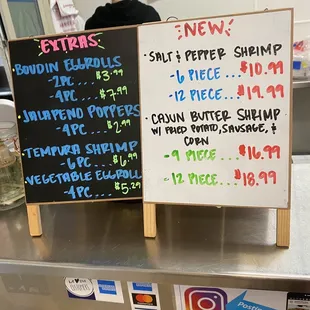 EXTRAS
BOUDIN EGGROLLS
-2PC... $3.99
-4PC... $7.99
JALAPENO POPPERS
-4PC... $2.99
TEMPURA SHRIMP
-6PC... $6.99
VEGETABLE EGGROLL
-4PC... $5.29
NEW
· SALT & PEPPER SHRIMP
-6 PIECE... $10.99
-12 PIECE... $19.99
· CAJUN BUTTER SHRIMP
W/ FRIED POTATO, SAUSAGE, &
CORN
-9 PIECE... $16.99
-12 PIECE.... $18.99